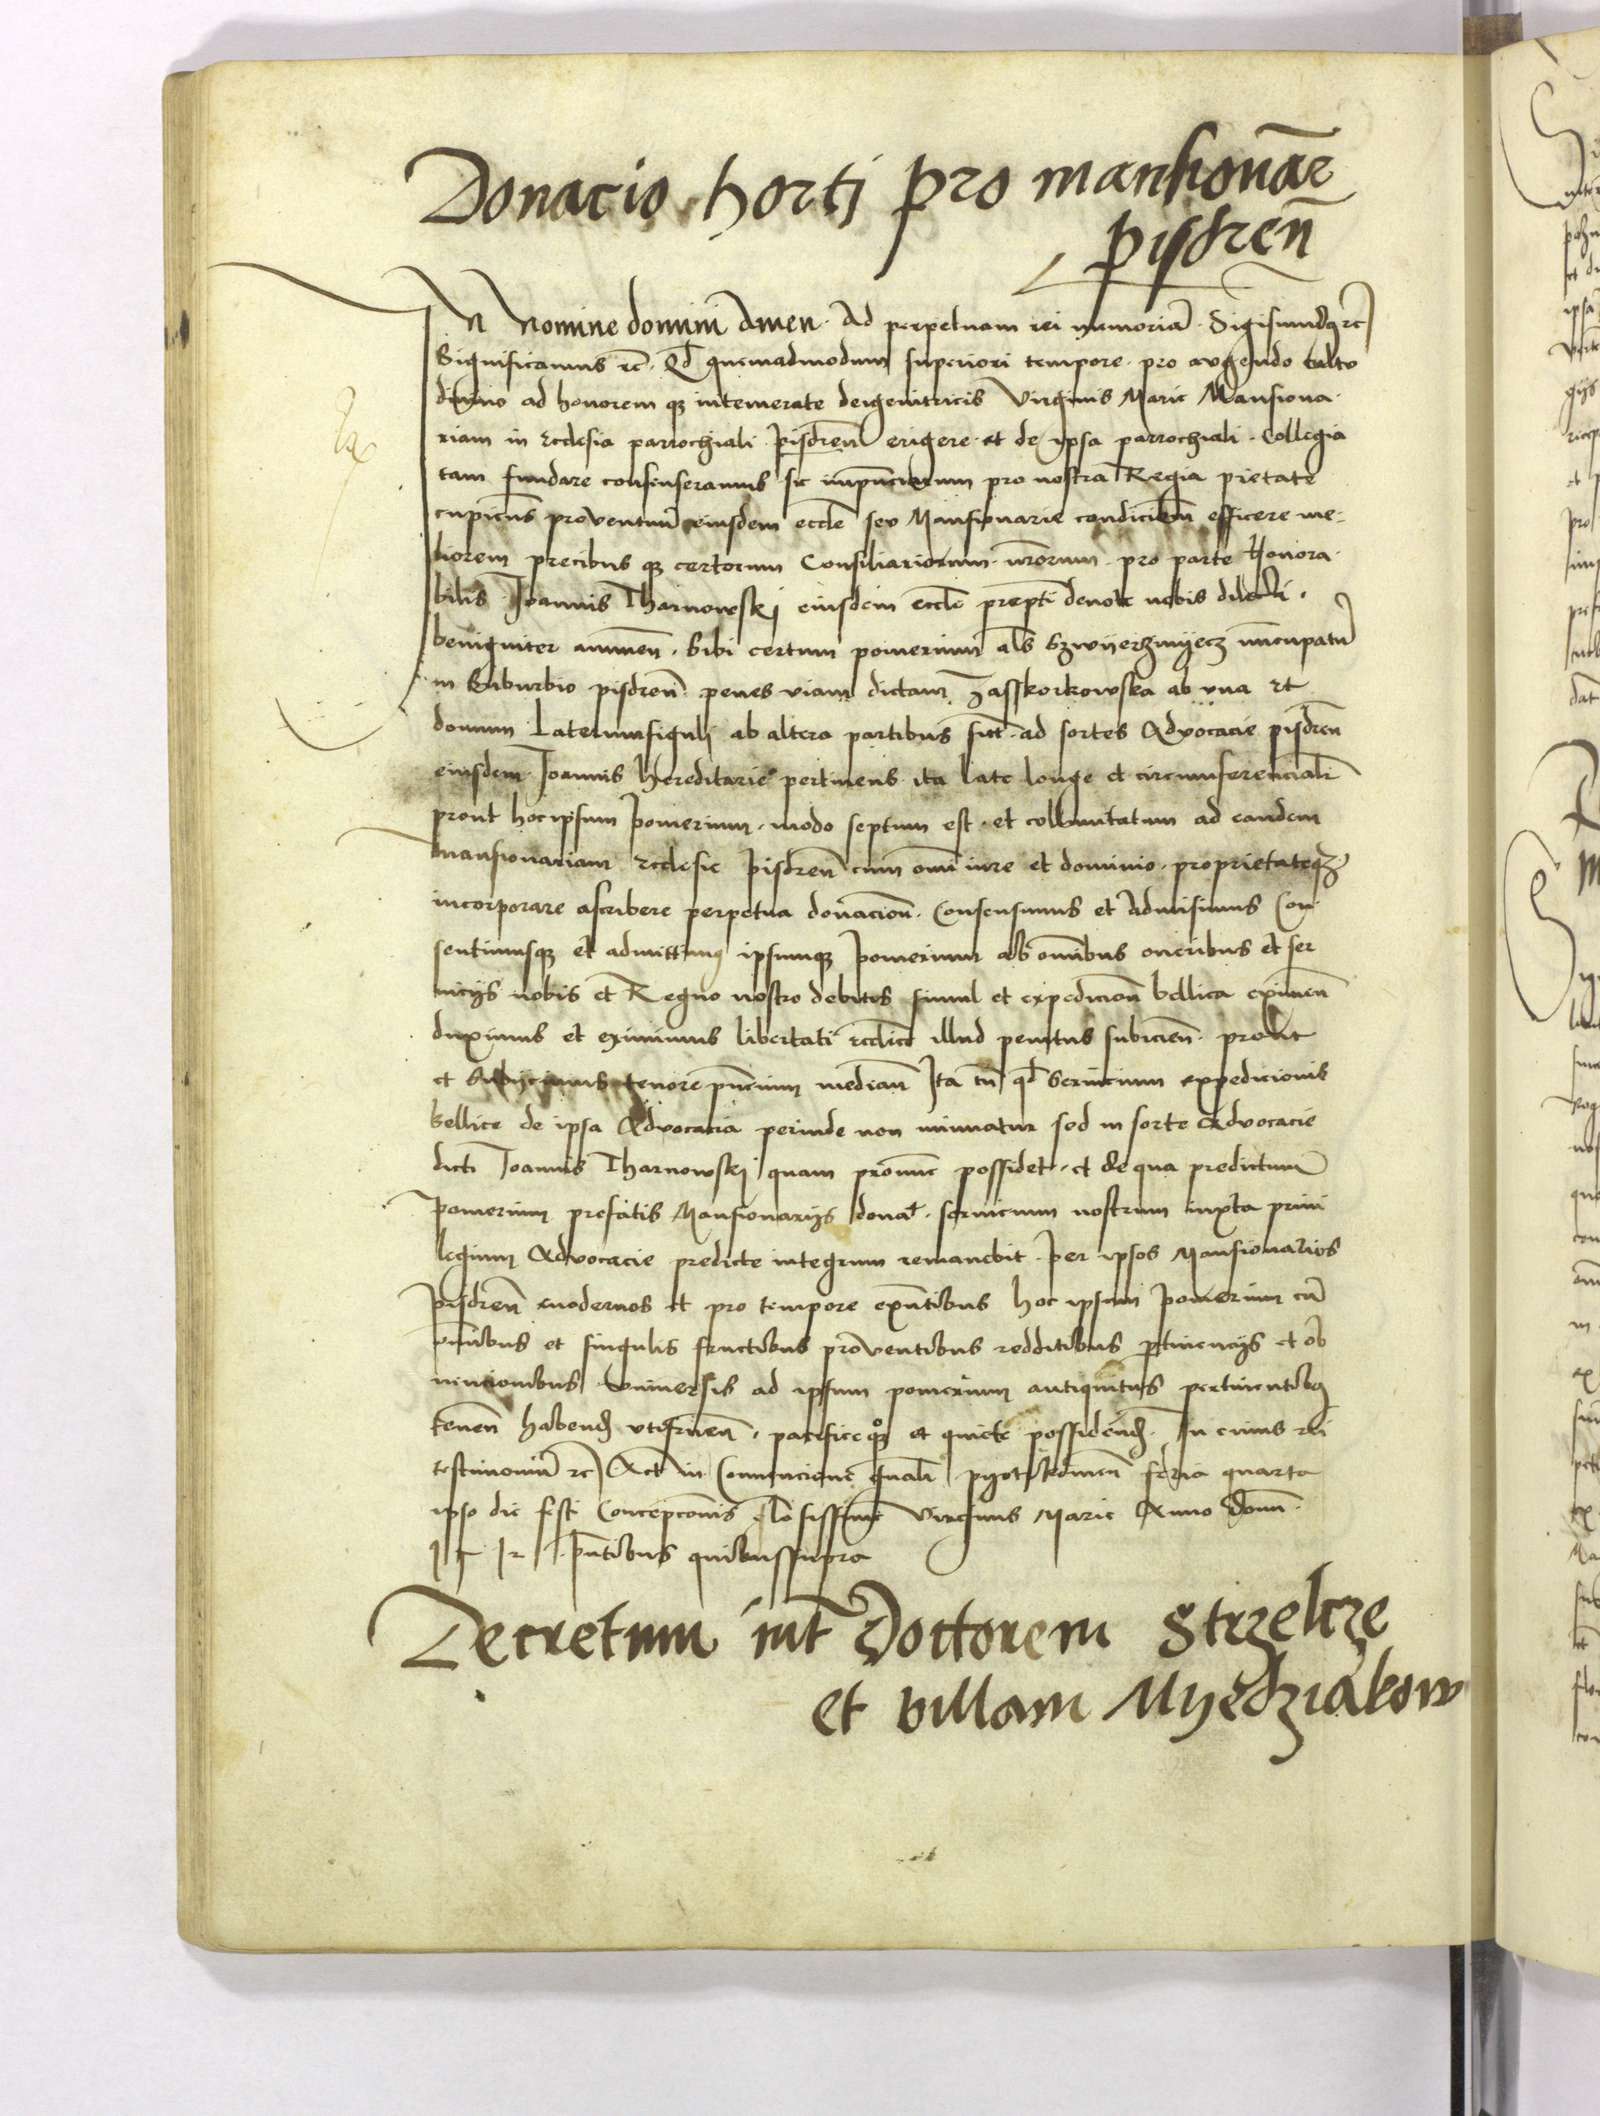 Donacio horti pro mansionar̃
pisdreñ
In Nomine domini Amen. Ad perpetuam rei memoriã. Sigismundus rc̃
Significamus rc̃. Qd̃ quemadmodum superiori tempore. pro augendo cultu
divino ad honorem qz intemerate deigenitricis Virginis Marie Mansiona-
riam in Ecclesia parrochiali pisdreñ erigere et de ipsa parrochiali. Collegia
tam fundare consenseramus sic pro nostra Regia pietate
cupientes proventuũ eiusdem eccl̃e seu Mansionarie condicioem̃ efficere me-
liorem precibus qz certorum Consiliariorum nr̃orum pro parte Honora-
bilis Joannis Tharnowskj eiusdem eccl̃e prep̃ti devote nobis dilecti.
benigniter annueñ. Sibi certum pomerium als̃ Szwyerzinyecz nũncupatũ
in Suburbio pisdreñ penes viam dictam Zasskorkowska ab una et
domum Laterumfigulj ab altera partibus sitt̃. ad sortes Advocacie pisdreñ
eiusdem Joannis hereditarie pertinens ita late longe et circumferencialr̃
prout hoc ipsum pomerium. modo septum est. et collimitatum ad eandem
mansionariam Ecclesie pisdreñ cum om̃i iure et dominio. proprietateqz
incorporare ascribere perpetua donacioñ. Consensimus et admisimus Con-
sentimusqz et admittimus ipsumqz pomerium ab om̃ibus oneribus et ser
uicijs nobis et Regno nostro debitis simul et expedicioñ bellica eximeñ
duximus et eximimus libertati eccl̃ice illud penitus subicieñ. prout
et Subijcimus tenore pñcium mediañ Ita tñ qd̃ Seruicium expedicionis
bellice de ipsa Advocacia perinde non minuatur sed in sorte Advocacie
dicti Joannis Tharnowskj quam pronunc possidet. et de qua predictum
pomerium prefatis Mansionarijs donat̃. seruicium nostrum iuxta priui
legium Advocacie predicte integrum remanebit. per ipsos Mansionarios
pisdreñ modernos et pro tempore exñtibus hoc ipsum pomerium cũ
om̃ibus et singulis fructibus proventibus redditibus ptinencijs et ob
uencionibus Vniversis ad ipsum pomerium antiquitus pertinentibus
teneñ habend̃ utifrueñ. pacificeqz et quiete possidend̃. In cuius rei
testimoniũ rc̃ Act̃ in Convencione gñali pyotrkouieñ feria quarta
ipso die festi Concepcõnis Virginis Marie Anno domĩ.
1512 pñtibus quibussupra
Decretum int̃ Doctorem Strzelcze
et villam Myedziakow